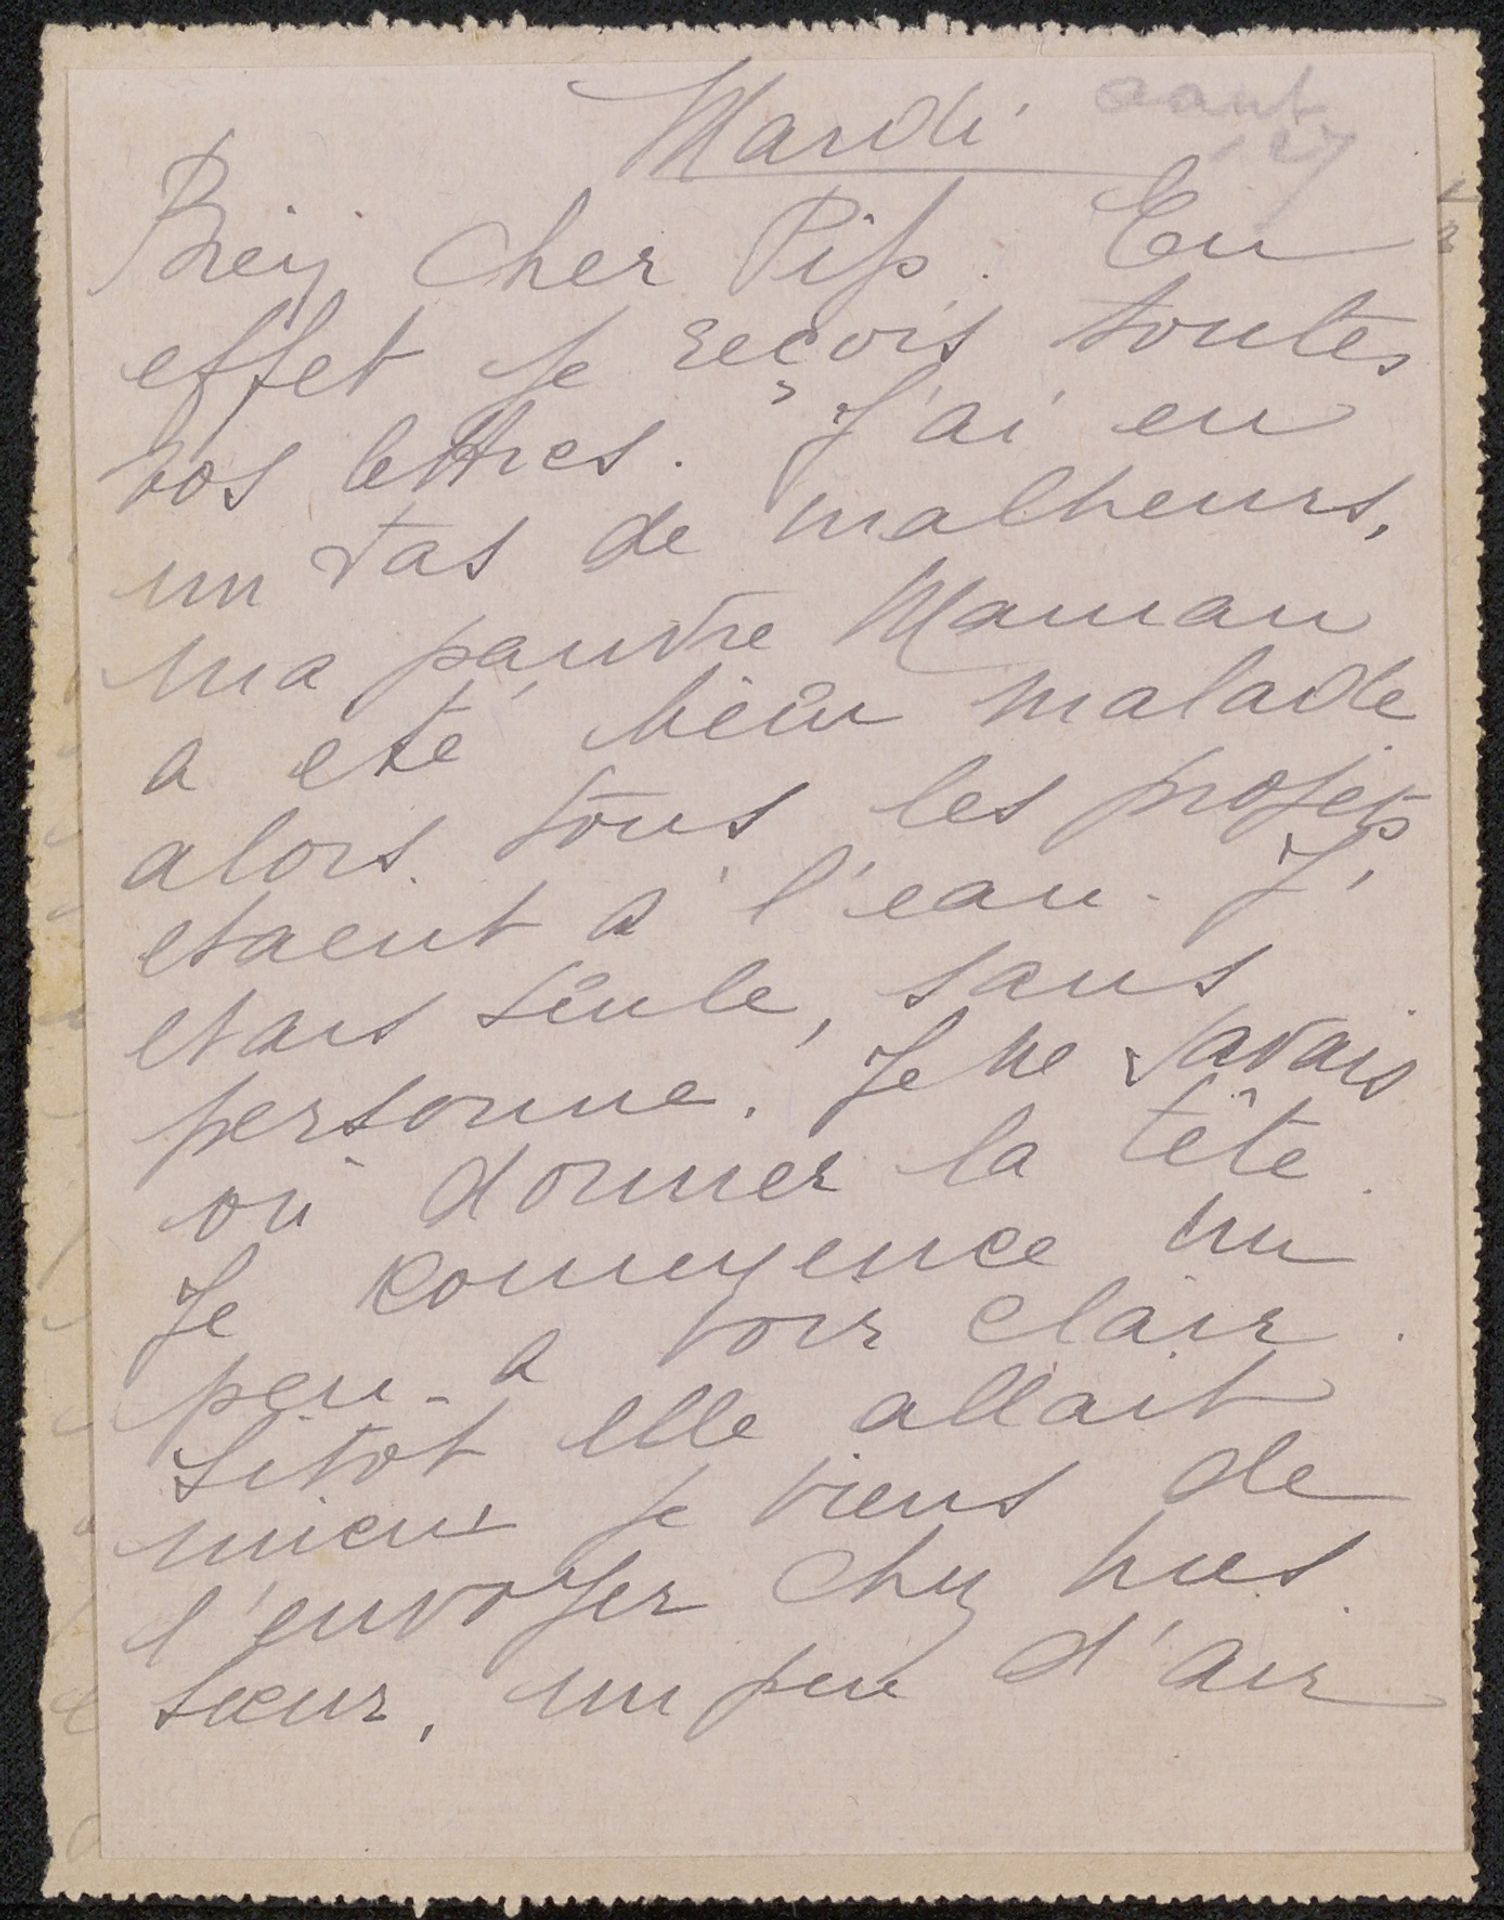 Mardi
Bien cher Pip. En
effet je reçois toutes
vos lettres. J'ai eu
un tas de malheurs,
ma pauvre Maman
a eté bien malade
alors tous les projets
etaent à l'eau. J'
etais seule, sans
personne. Je ne savais
où donner la tête.
Je commence un
peu a voir clair.
Sitot elle allait
mieux je viens de
l'envoyer chez mes
sœur, un peu d'air